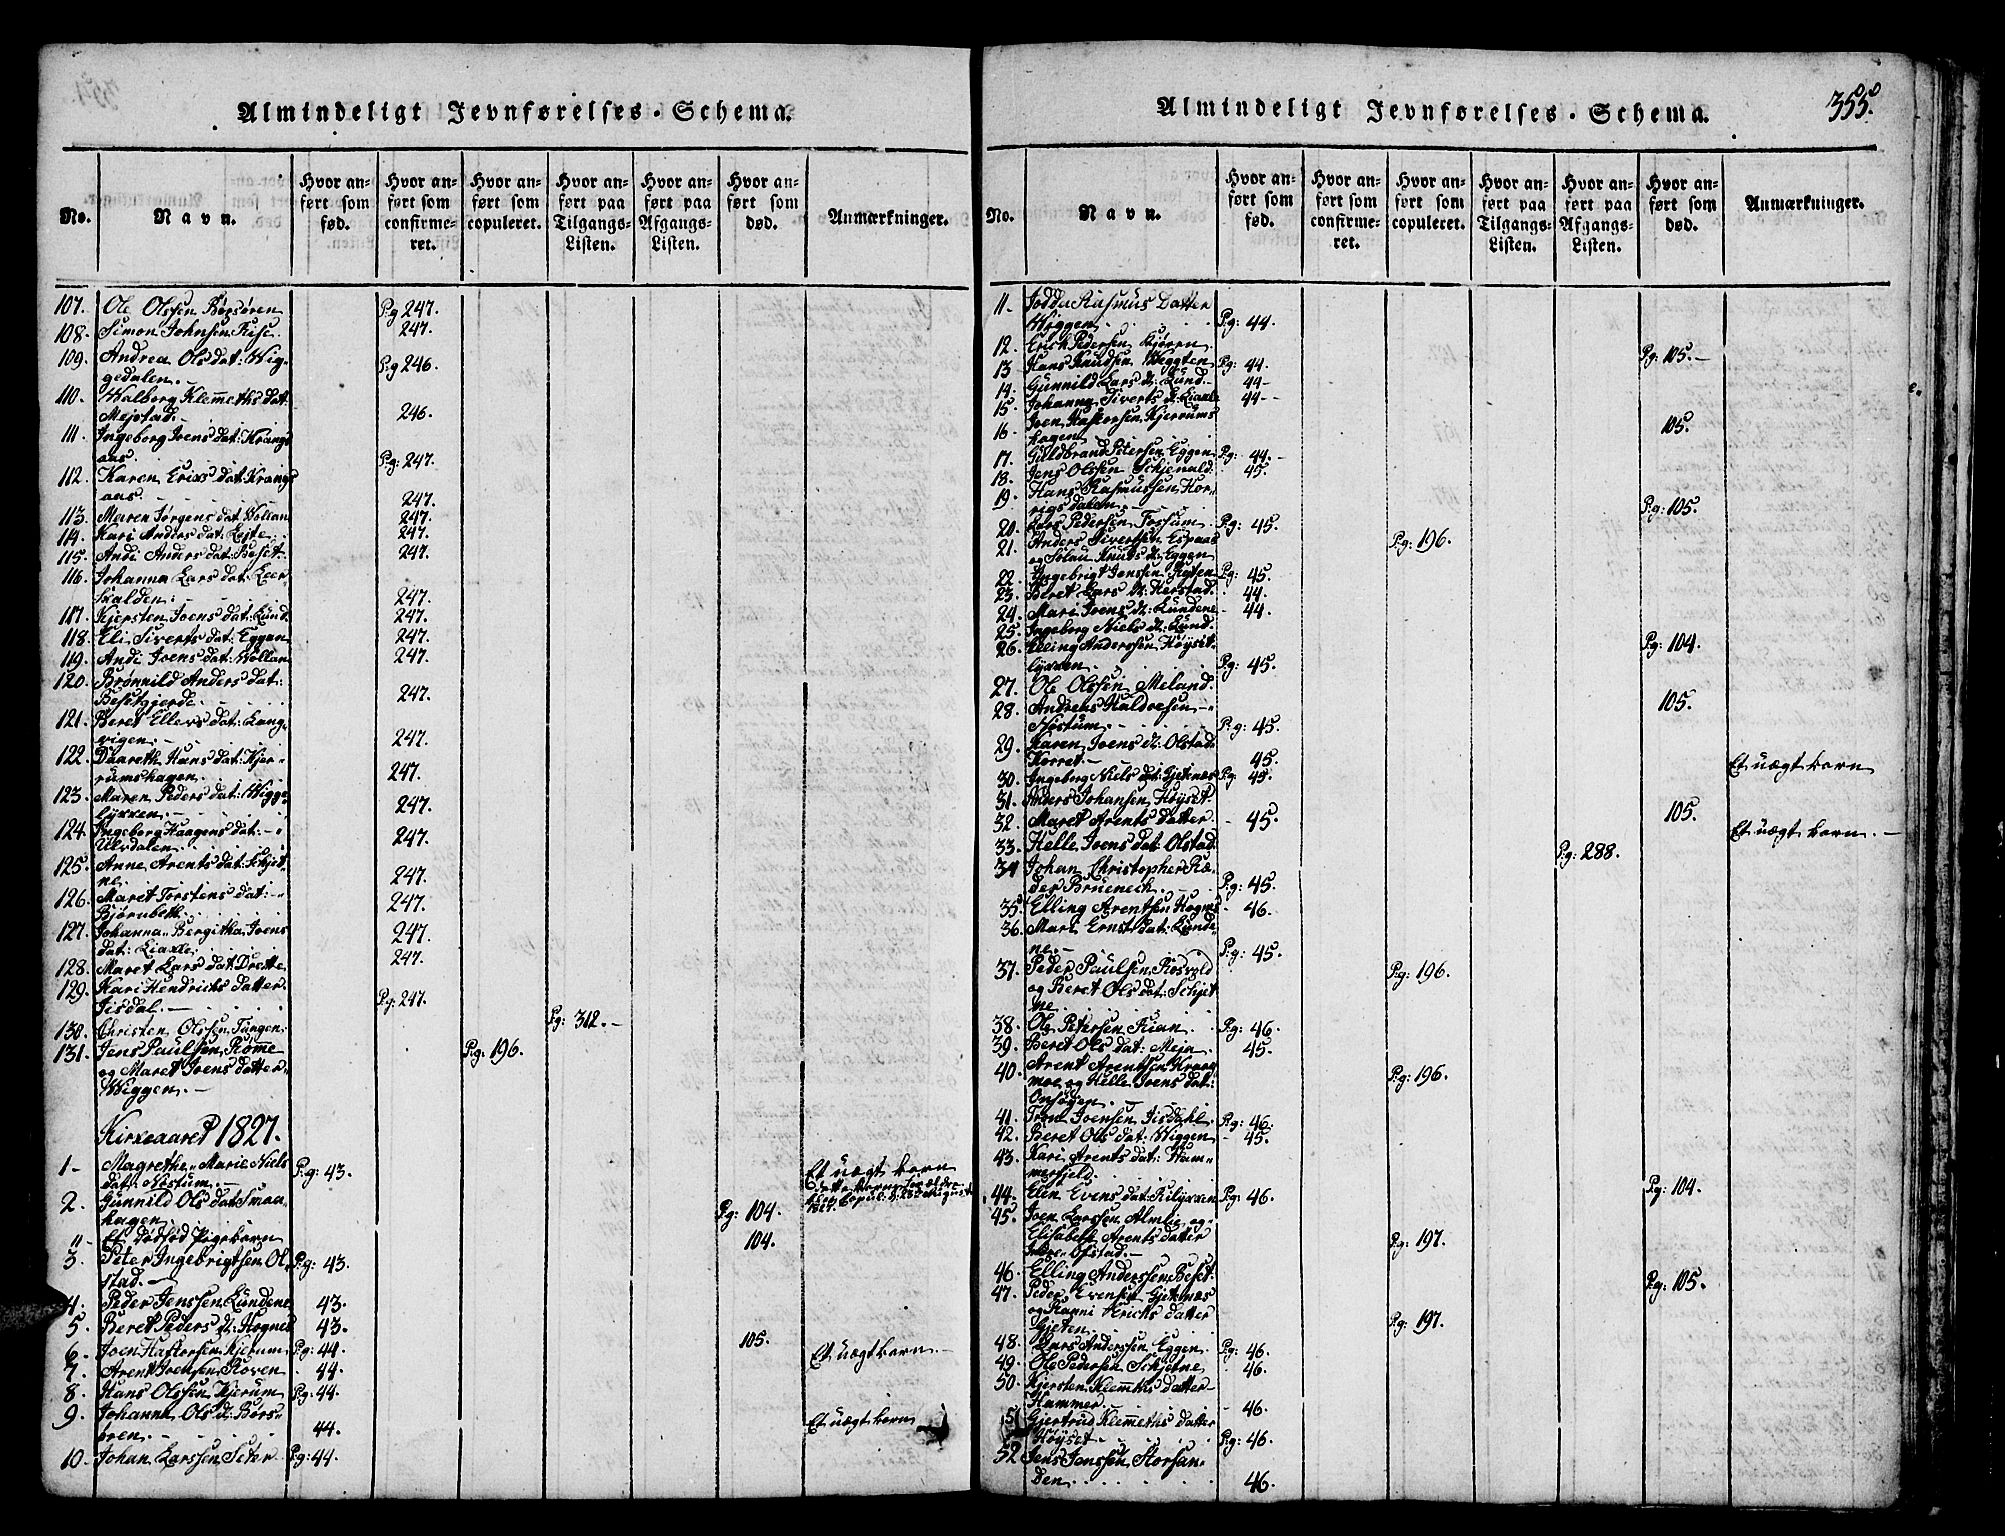 Almindeligt Jevnførelses-Schema.
No.
Navn.
Hvor anført som fød.
Hvor anført som confirmeret.
Hvor anført som copuleret.
Hvor anført paa Tilgangs-Listen.
Hvor anført paa Afgangs-Listen.
Hvor anført som død.
Anmærkninger.
107. Ole Olssen Børsøren Pg 247.
108. Simon Johnsen Rise 247.
109. Andrea Olsdat: Wig-
gedalen. Pg 246.
110. Walborg Klemeths dat:
Mejstad. 246.
111. Ingeborg Joens dat: Krangs
aas. Pg: 247.
112. Karen Erixs dat: Krangs
aas. 247.
113. Maren Jørgens dat: Wollan 247.
114. Kari Anders dat: 247.
115. Andi Anders dat: Beset 247.
116. Johanna Lars dat: Leer-
skalden: 247.
117. Kjersten Joens dat: Lund 247.
118. Eli Siverts dat: Eggen 247.
119. Andi Joens dat: Wollan 247.
120. Brønnild Anders dat:
Besetgjerde. 247.
121. Beret Ellers dat: Lang-
vigen. 247.
122. Daareth Hans dat: Kjer-
rumshagen. 247.
123. Maren Peders dat: Wigge-
lyxxen. 247.
124. Ingeborg Haagens dat: -
Ulvdalen. 247.
125. Anne Arents dat: Schjet-
ne. 247.
126. Maret Torstens dat: -
Bjørnbeth. 247.
127. Johanna Bergitha Joens
dat: Liaxle. 247.
128. Maret Lars dat: Drette 247.
129. Kari Hendrichs datter
Jisdal. Pg: 247.
130. Christen Olssen Tangen. Pg: 312.
131. Jens Paulsen Rome Pg: 196.
og Maret Joens datter
Wiggen.
Kirkeaaret 1827.
1- Magrethe Marie Niels
dat: Røstum. Pg: 43. Et uægt barn
2. Gunnild Ols dat: Smaa-
hagen. Pg: 104.
" Et dødfød Pigebarn 104.
3. Peter Ingebrigtsen Ol-
stad. Pg: 43.
4. Peder Jenssen Lundene 43.
5. Beret Peders d: Hognes 43. 105.
6. Joen Hastorsen Kjerum Pg: 44. Et uægt barn
7. Arent Joensen Roven 44.
8. Hans Olssen Kjerum Pg: 44.
9. Johanna Ols d: Børs-
øren. 44. Et uægt barn
10. Johan Larssen Seter Pg: 44.
Almindeligt Jevnførelses-Schema.
355.
No.
Navn.
Hvor anført som fød.
Hvor anført som confirmeret.
Hvor anført som copuleret.
Hvor anført paa Tilgangs-Listen.
Hvor anført paa Afgangs-Listen.
Hvor anført som død.
Anmærkninger.
11. Rasmus Datter
Wiggen. Pg: 44.
12. Erich Pedersen Kjøren Pg: 105.
13. Hans Knudsen Weggten Pg: 44.
14. Gunnild Lars d: Lund 44
15. Johanna Siverts d: Liaxle 44
16. Joen Hastorsen Kjerrums
hagen 105.
17. Guldbrand Petersen Eggen Pg: 44.
18. Jens Olssen Schjenald 45.
19. Hans Rasmussen Hor-
rigsdalen. Pg: 105.
20. Lars Pedersen Fossum Pg: 45.
21. Anders Siversen Espaas
og Knuds d: Eggen Pg: 196.
22. Ingebrigt Jenssen Pg: 45.
23. Beret Lars d: Herstad 44.
24. Mari Joens d: Lundene 44.
25. Ingeborg Niels d: Lund. Pg: 104.
26. Elling Anderssen Høyset-
lyxxen. Pg: 45.
27. Ole Olssen Meland. 105.
28. Andreas Haldoesen
Røstum. Pg: 45.
29. Karen Joens d: Olstad
Korret 45. Et uægt barn
30. Ingeborg Niels dat: Gjetnæs Pg: 45.
31. Anders Johansen Høyset 105.
32. Maret Arents datter 45. Et uægt barn.
33. Helle Joens dat: Olstad Pg: 288.
34 Johan Christopher Ræ-
der Bruenech. Pg: 45.
35. Elling Arentsen Hognes 46.
36. Mari Ernst dat: Lunde-
ne. Pg: 45.
37. Peder Paulsen Rosvold
og Beret Ols dat: Schjet
ne Pg: 196.
38. Ole Petersen Rian Pg: 46.
39. Beret Ols dat: Meja 45.
40. Arent Arentsen Kraag
moe og Helle Joens dat:
Onsøgen. Pg: 196.
41. Tron Joensen Jisdahl Pg: 46.
42. Beret Ols dat: Wiggen 45.
43. Kari Arents dat: Ham-
merfjeld. Pg: 104.
44. Elen Evens dat: Rilyxxen Pg: 46.
45. Joen Larssen Almlie og
Elisabeth Arents datter
Ofstad. Pg: 197.
46. Elling Anderssen Beset Pg: 105.
47. Peder Evensen Gjetnæs
og Ranni Erichs datter
Gjeten. Pg: 197.
48. Lars Anderssen Eggen Pg: 46.
49. Ole Pedersen Schjetne 46.
50. Kjersten Klemeths datter
Hammer. 46.
51 Gjertrud Klemeths datter
Høyset Pg: 46.
52 Jens Jenssen Storsan-
den. 46.